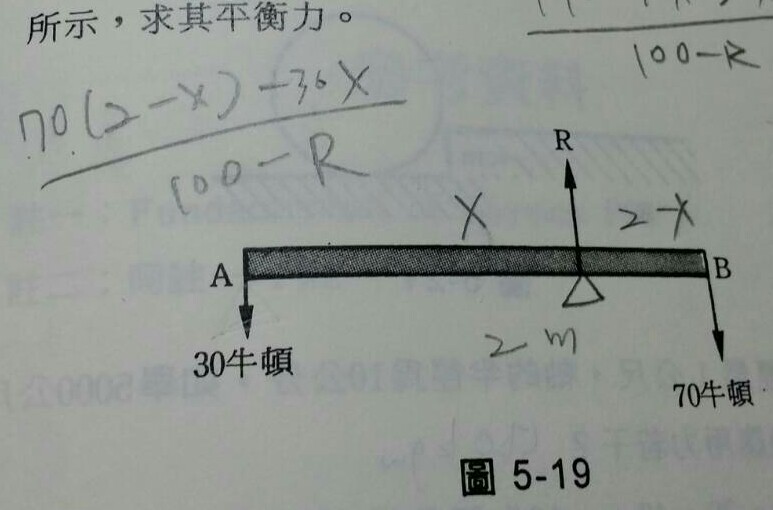 所示，求其平衡力。
100-R
70(2-x)-30x
100-R
R
x
2-x
A
B
2m
30牛頓
70牛頓
圖 5-19